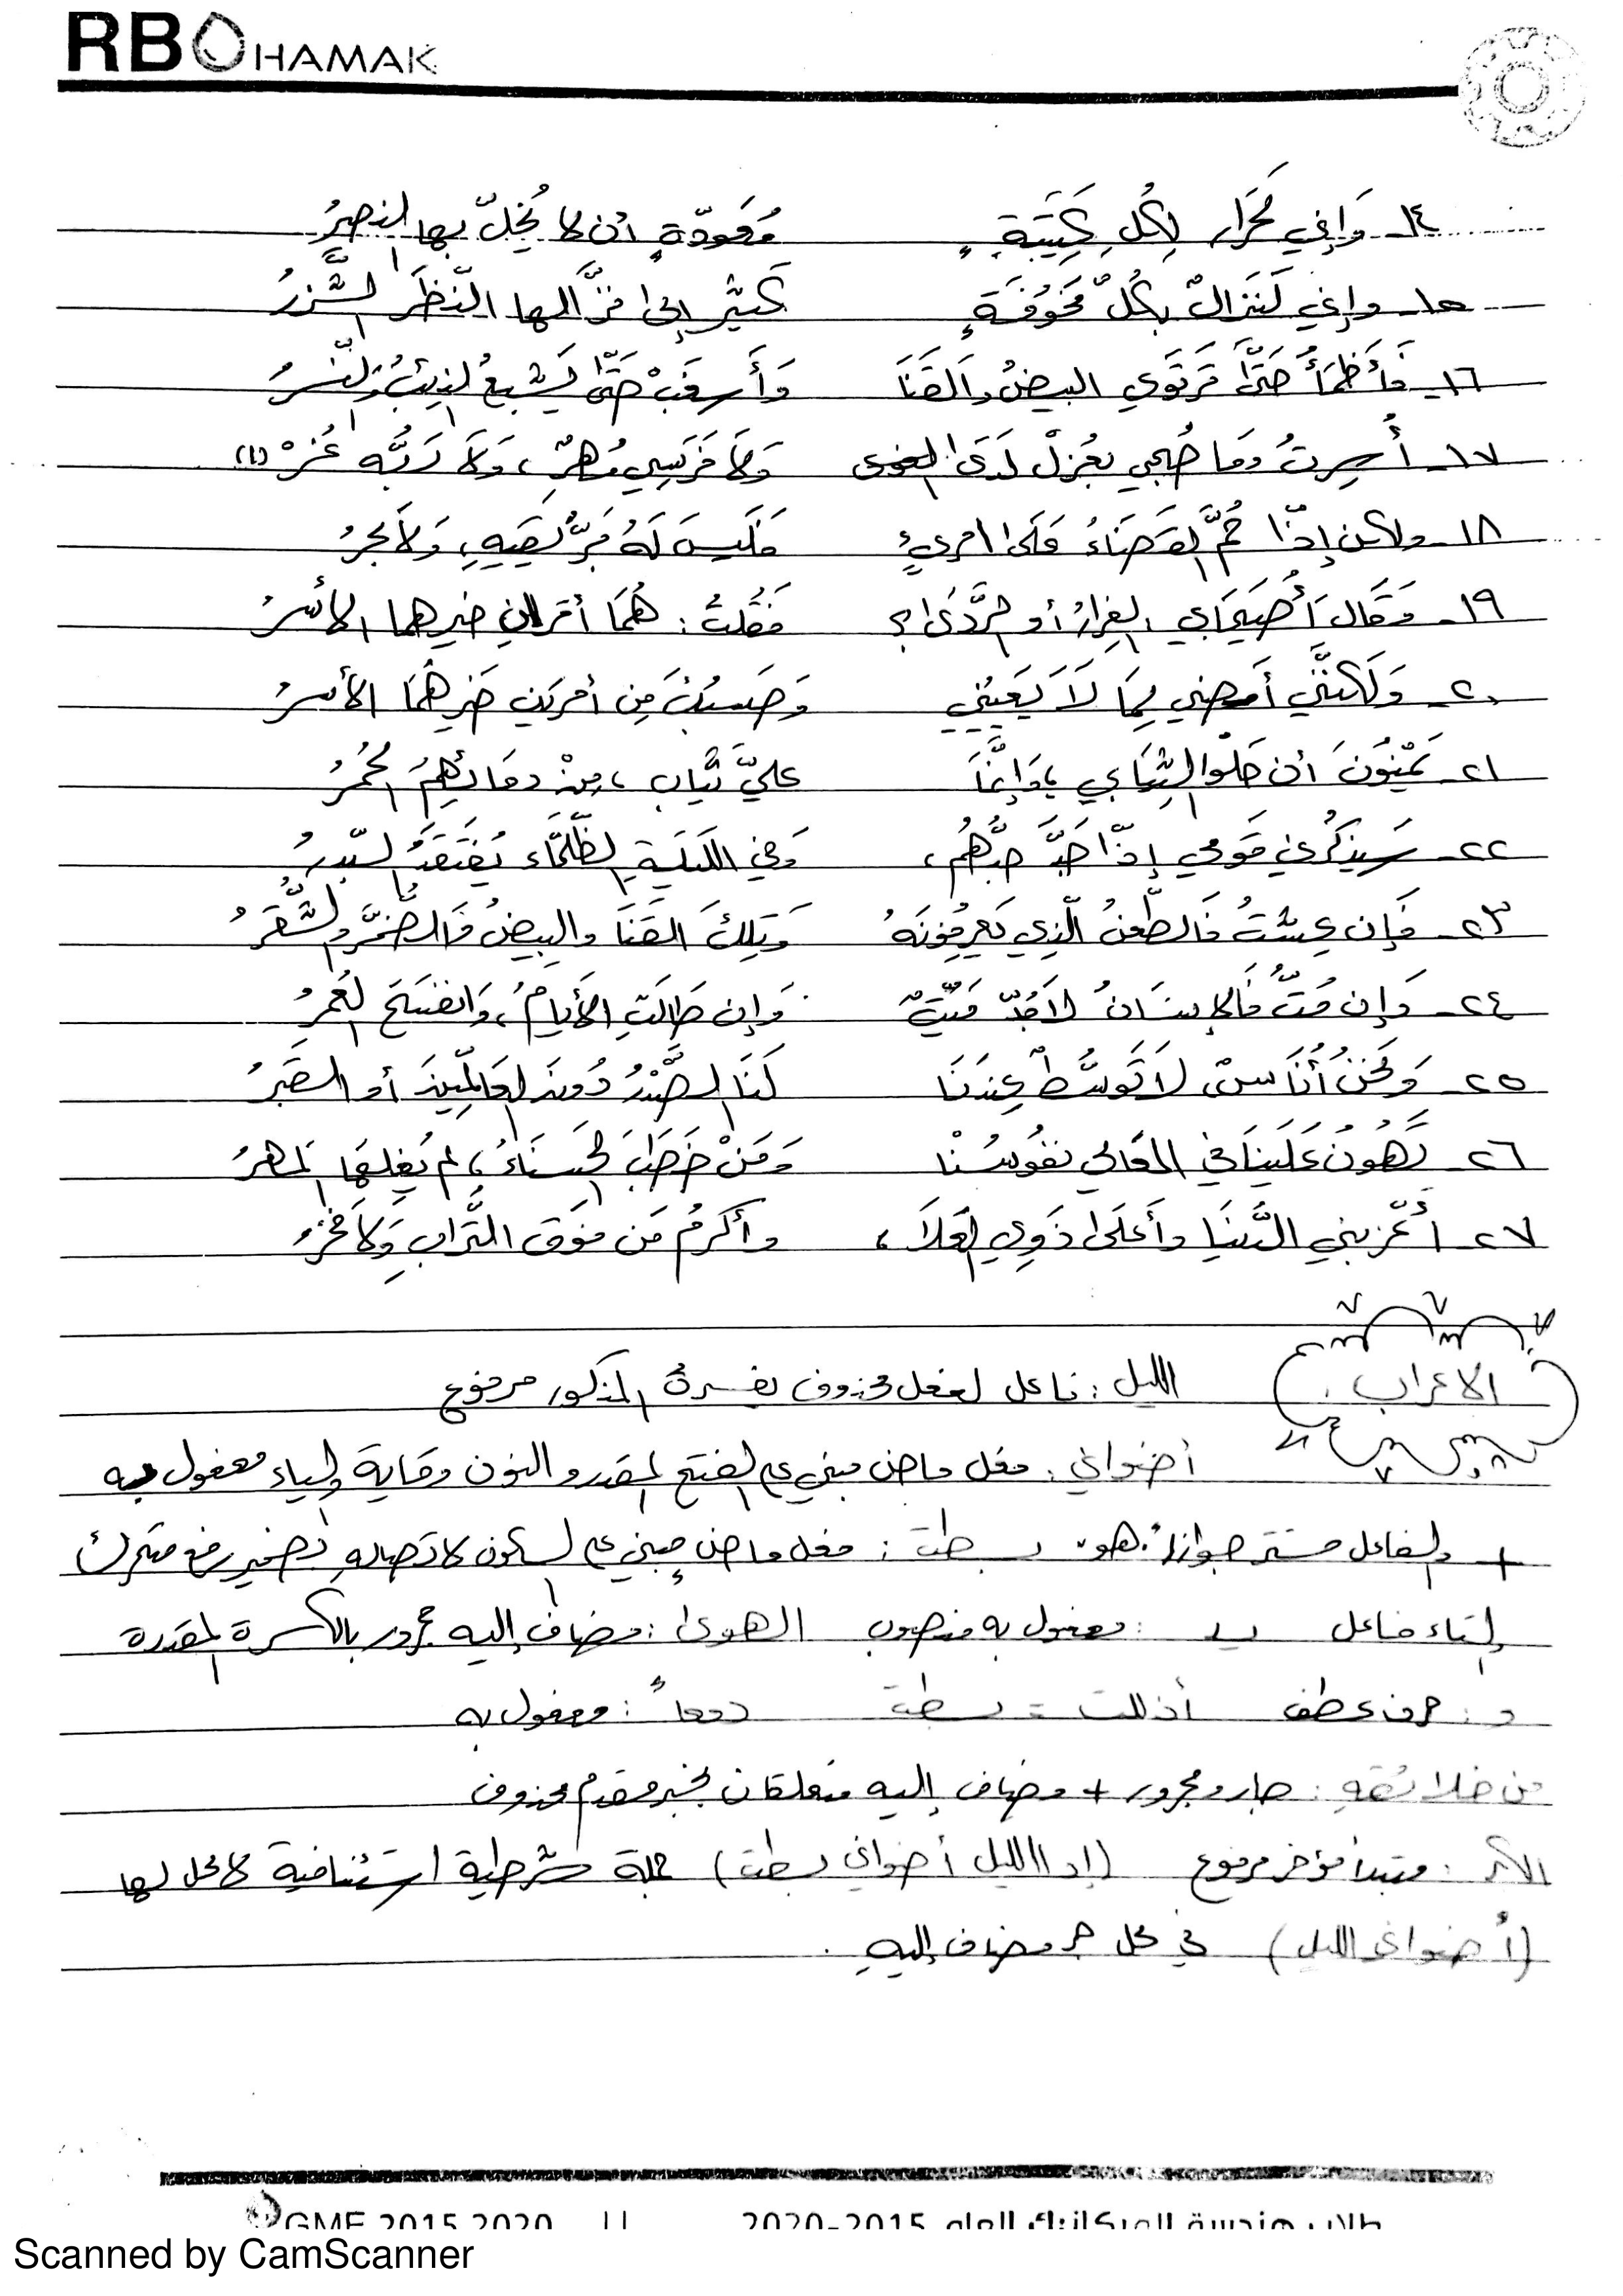 RBOHAMAK
١٤- وَإِنِّي لَجَرَّار لِكُلِّ كَتِيبَةٍ مُعَوَّدَةٍ أن لا يُخِلّ بها النصرُ
١٥- وإني لَنَزالٌ بكُلِّ مَخُوفَةٍ كَثير إلى نزَّالها النّظَر الشَّزرُ
١٦- فَأَظمَأُ حَتَّى تَرتَوي البيضُ والقَنَا وَأَسغَبْ حَتَّى يَشبعُ الذِئبُ والنّسرُ
١٧- أُسِرتُ ومَا صُحبي بعُزلْ لَدَى الوغى وَلا فَرَسِي مُهرٌ، وَلاَ رَبُّه غُمْرْ (١)
١٨- ولاكن إذا حُمَّ القَضَاءُ عَلَى امرىءٍ فَلَيسَ لَهُ بَرٌّ يَقِيهِ، وَلاَ بحرُ
١٩- وَقَال أُصَيحَابي الفِرارُ أو الرَّدَى؟ فَقُلتُ: هُمَا أمران خيرهما الأسرُ
٢٠- وَلَاكنَّنِي أَمضِي لِمَا لاَ يَعيبُني وَحَسبُكَ مِن أمرَين خَيرهُمَا الأسرُ
٢١- يَمُنّونَ أن خَلّوا ثِيَابي، وَإنَّمَا عليَّ ثيَاب، مِنْ دمَائِهِمُ حُمْرُ
٢٢- سَيذكُرُني قومي إذا جَدَّ جِدُّهُم، وَفي اللّيلَةِ الظّلمَاء يُفتَقَدُ البدرُ
٢٣- فَإن عِشتُ فَالطّعنُ الّذِي يَعرِفُونَهُ وَتِلكَ القَنَا والبيضُ وَالضّمَّرُ الشُّقرُ
٢٤- وَإن مُتُّ فَالإنسَانُ لاَبُدّ مَيّتٌ وَإن طَالَتِ الأيامُ، وَانفَسَحَ العُمرُ
٢٥- وَنَحنُ أُنَاسٌ، لاَ تَوَسُّطَ عِندَنَا لَنَا الصَّدْرُ دُونَ العَالمينَ أو القَبرُ
٢٦- تَهُونُ عَلَينَا في المعَالي نفوسُنا وَمَنْ خَطَبَ الحَسنَاءَ، لم يُغلِهَا المَهرُ
٢٧- أعَزّ بني الدُّنيَا وأعلَى ذَوِي العُلاَ، وأكرَمُ مَن فوَق التّرَابِ وَلاَ فخرُ
الاعراب
الليل: فاعل لفعل محذوف يفسره المذكور مرفوع
أضواني: فعل ماض مبني على الفتح المقدر والنون وقاية والياء مفعول به
+ والفاعل مستتر جوازاً "هو" بسطت: فعل ماض مبني على السكون لاتصاله بضمير رفع متحرك
والتاء فاعل يد: مفعول به منصوب الهوى: مضاف إليه مجرور بالكسرة المقدرة
و: حرف عطف أذللت = بسطت دمعاً: مفعول به
من خلائقهِ: جار ومجرور + مضاف إليه متعلقان بخبر مقدم محذوف
الكبر: مبتدأ مؤخر مرفوع (إذا الليل أضواني بسطت) جملة شرطية استئنافية لا محل لها
(أضواني الليل) في محل جر مضاف إليهِ.
GME 2015 2020
طلاب هندسة الميكانيك العام 2015-2020
Scanned by CamScanner